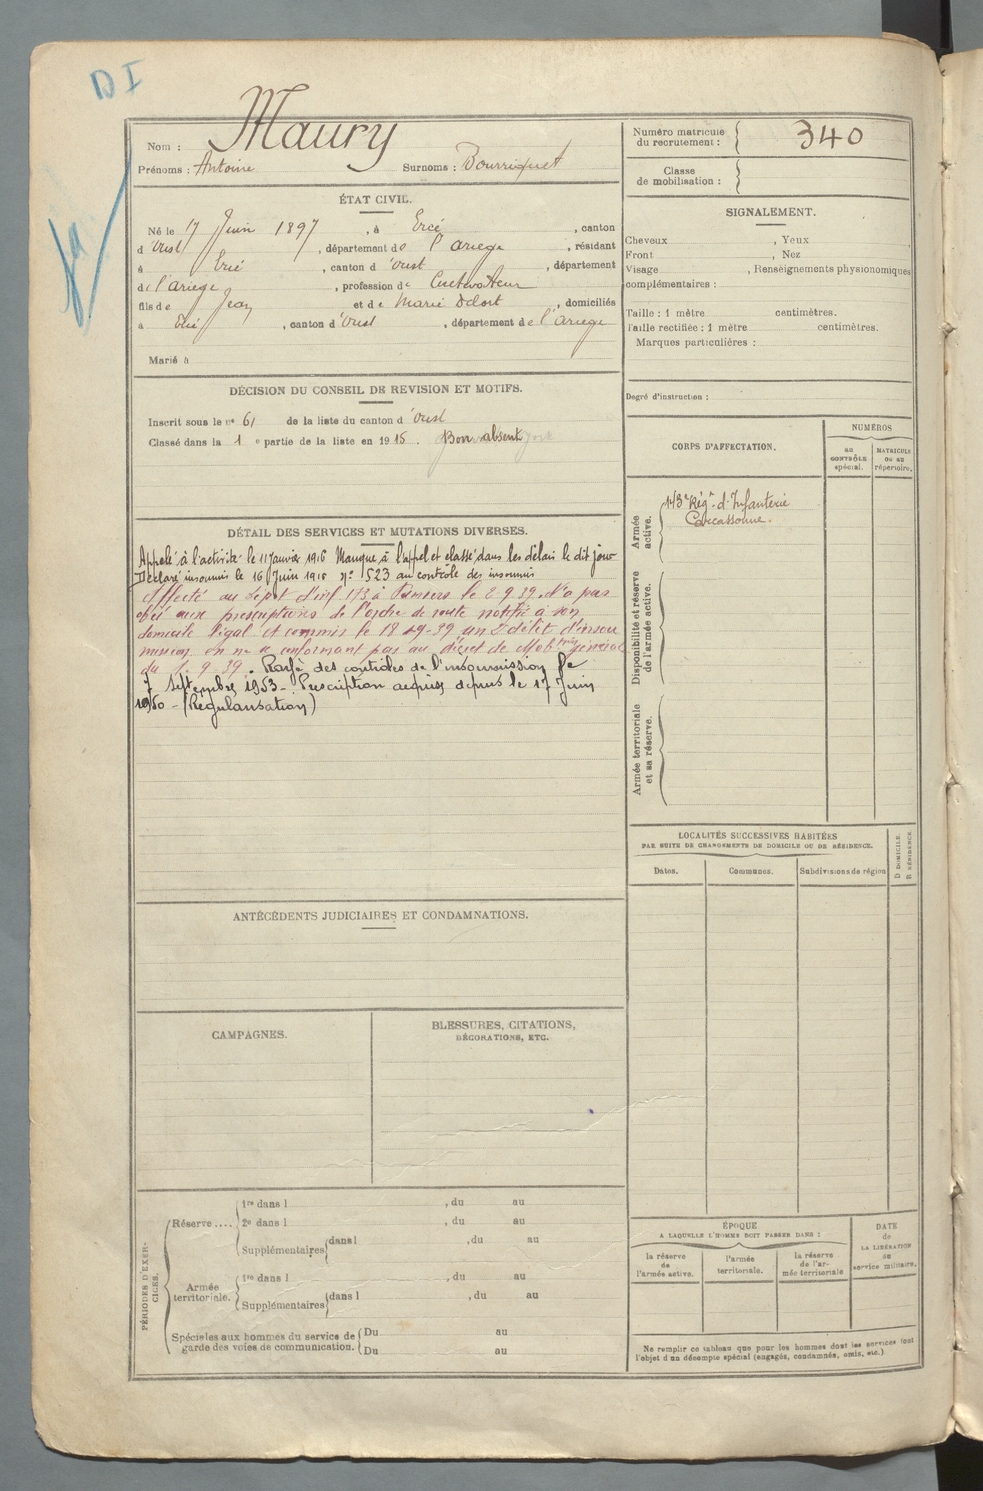 D I
Maury
Nom :
Prénoms : Antoine Surnoms : Bourriquet
ÉTAT CIVIL.
Né le 17 Juin 1897, à Ercé, canton
d'Oust, département de l'ariege, résidant
à Ercé, canton d'oust, département
de l'ariege, profession de Cultivateur
fils de Jean et de Marie Delort, domiciliés
à Ercé, canton d'Oust, département de l'Ariege
Marié à
DÉCISION DU CONSEIL DE REVISION ET MOTIFS.
Inscrit sous le n° 61 de la liste du canton d'Oust
Classé dans la 1e partie de la liste en 1915. Bon absent
DÉTAIL DES SERVICES ET MUTATIONS DIVERSES.
Appelé à l'activité le 11 Janvier 1916 Manque à l'appel et classé dans les délais le dit jour
Déclaré insoumis le 16 Juin 1916 N° 523 au contrôle des insoumis
Affecté au Dépôt d'inf 173 à Pamiers le 2.9.39. N'a pas
obéi aux prescriptions de l'ordre de route notifié à son
domicile légal et commis le 18-9-39 un 2e délit d'insou
mission en ne se conformant pas au décret de Mobon générale
du 1.9.39. Rayé des contrôles de l'insoumission le
7 septembre 1953 - Prescription acquise depuis le 17 Juin
1950 - (Régularisation)
ANTÉCÉDENTS JUDICIAIRES ET CONDAMNATIONS.
CAMPAGNES.
BLESSURES, CITATIONS,
DÉCORATIONS, ETC.
PÉRIODES D'EXER-
CICES.
Réserve....
1re dans l , du au
2e dans l , du au
Supplémentaires dans l , du au
Armée
territoriale.
1re dans l , du au
Supplémentaires dans l , du au
Spéciales aux hommes du service de
garde des voies de communication.
Du au
Du au
Numéro matricule
du recrutement : 340
Classe
de mobilisation :
SIGNALEMENT.
Cheveux , Yeux
Front , Nez
Visage , Renseignements physionomiques
complémentaires :
Taille : 1 mètre centimètres.
Taille rectifiée : 1 mètre centimètres.
Marques particulières :
Degré d'instruction :
CORPS D'AFFECTATION.
NUMÉROS
au
CONTRÔLE
spécial.
MATRICULE
ou au
répertoire.
Armée
active.
143e Régt d'Infanterie
Carcassonne.
Disponibilité et réserve
de l'armée active.
Armée territoriale
et sa réserve.
LOCALITÉS SUCCESSIVES HABITÉES
PAR SUITE DE CHANGEMENTS DE DOMICILE OU DE RÉSIDENCE.
Dates. Communes. Subdivisions de région
D DOMICILE.
R RÉSIDENCE.
ÉPOQUE
A LAQUELLE L'HOMME DOIT PASSER DANS :
la réserve
de
l'armée active.
l'armée
territoriale.
la réserve
de l'ar-
mée territoriale
DATE
de
LA LIBÉRATION
du
service militaire.
Ne remplir ce tableau que pour les hommes dont les services font
l'objet d'un décompte spécial (engagés, condamnés, omis, etc.)